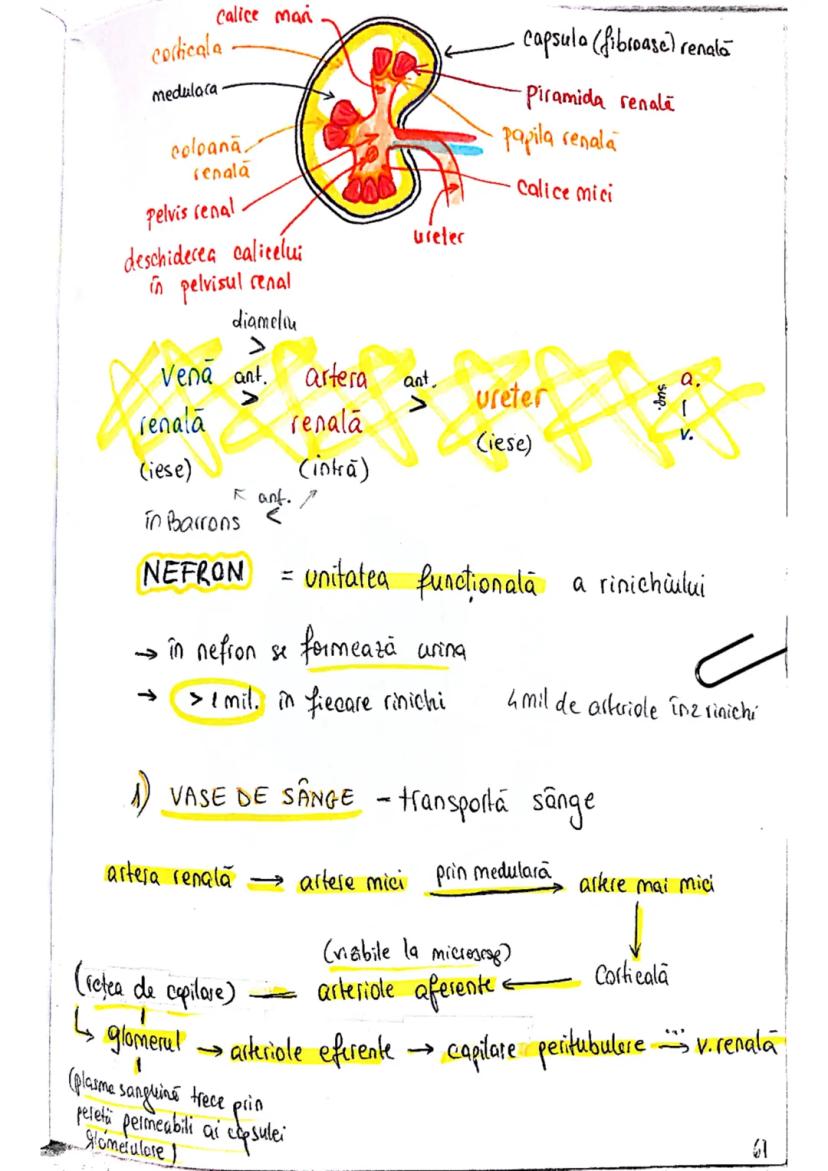 calice mari
corticala
capsula (fibroasă) renală
medulara
piramida renală
coloană
renală
papila renală
pelvis renal
calice mici
ureter
deschiderea calicelui
în pelvisul renal
diametru
>
venă ant. artera ant. ureter sup. a.
renală > renală > (iese) v.
(iese) (intră)
ant.
în Barrons <
NEFRON = unitatea funcțională a rinichiului
→ în nefron se formează urina
→ >1 mil. în fiecare rinichi 4 mil de arteriole în 2 rinichi
1) VASE DE SÂNGE - transportă sânge
artera renală → artere mici prin medulară → artere mai mici
(vizibile la microscop)
(rețea de capilare) — arteriole aferente ← Corticală
↳ glomerul → arteriole eferente → capilare peritubulare ...→ v. renală
(plasma sanguină trece prin
pereții permeabili ai capsulei
glomerulare)
61